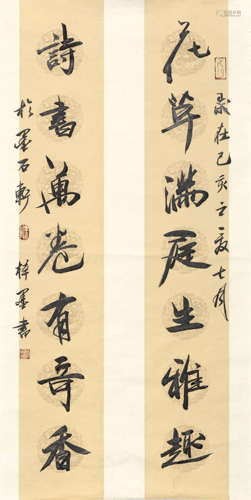 花草滿庭生雅趣
歲在己亥之夏七月
詩書萬卷有奇香
於墨石軒
梓墨書